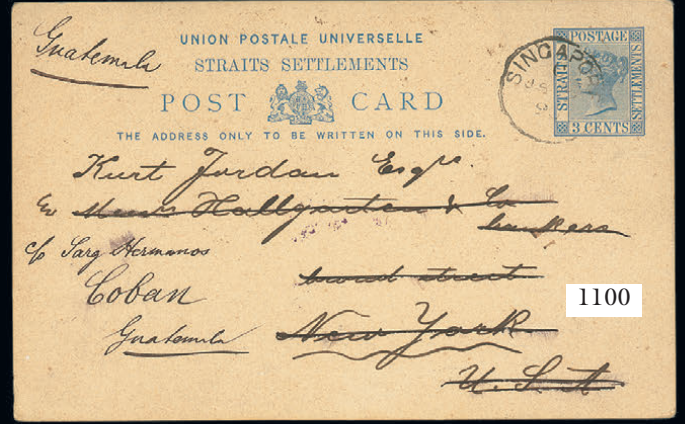 Guatemala
UNION POSTALE UNIVERSELLE
STRAITS SETTLEMENTS
POST CARD
THE ADDRESS ONLY TO BE WRITTEN ON THIS SIDE.
SINGAPORE
STRAITS
POSTAGE
SETTLEMENTS
3 CENTS
Kurt Jordan Esqre
Messrs Hallgarten & Co
bankers
c/o Sarg Hermanos
broad street
Coban
1100
Guatemala
New York
U.S.A